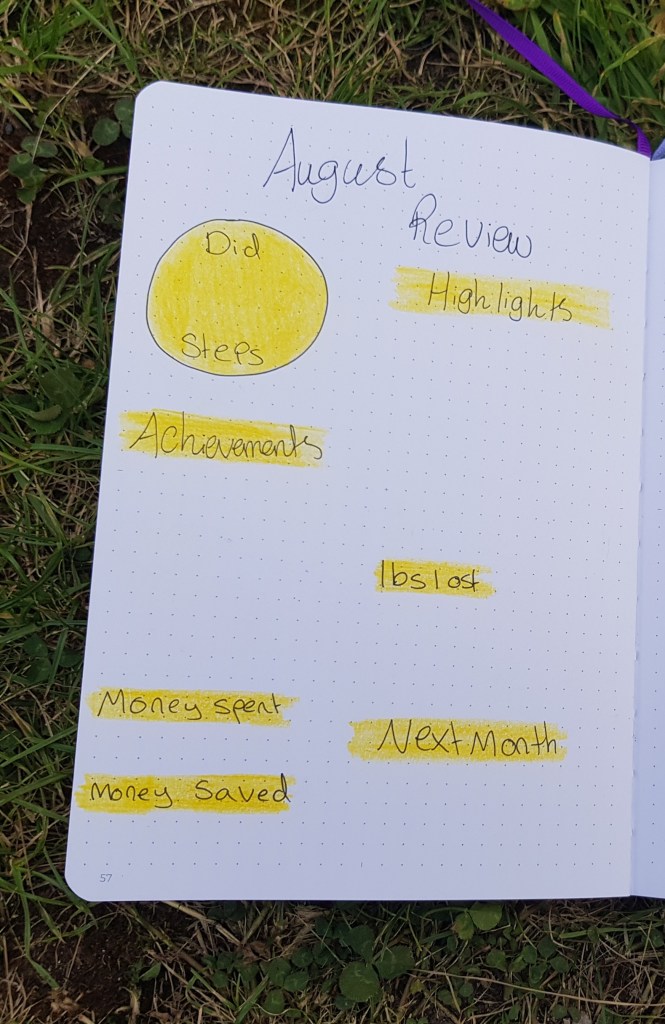 August
Review
Did
Steps
Highlights
Achievements
lbs lost
Money spent
Next Month
Money Saved
57